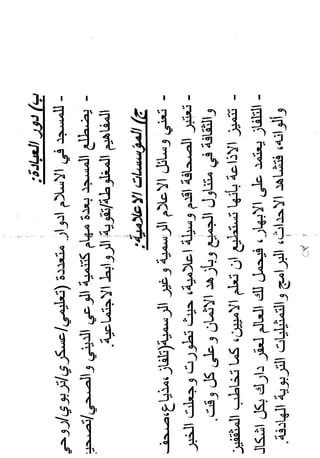 ب) دور العبادة:
- للمسجد في الاسلام ادوار متعددة (تعليمي/عسكري/تربوي/روحي
- يضطلع المسجد بعدة مهام كتنمية الوعي الديني والصحي/تصحيح
المفاهيم المغلوطة/تقوية الروابط الاجتماعية.
ج) المؤسسات الاعلامية:
- تعني وسائل الاعلام الرسمية وغير الرسمية(تلفاز ،مذياع،صحف
- تعتبر الصحافة اقدم وسيلة اعلامية، حيث تطورت وجعلت الخبر
والثقافة في متناول الجميع وبأزهد الاثمان وعلى كل وقت.
- تتميز الاذاعة بأنها تستطيع ان تعلم الاميين، كما تخاطب المثقفين
- التلفاز يعتمد على الابهار، فيحمل لك العالم لعقر دارك بكل اشكاله
وألوانه، فتشاهد الاحداث، البرامج والتمثيليات التربوية الهادفة.